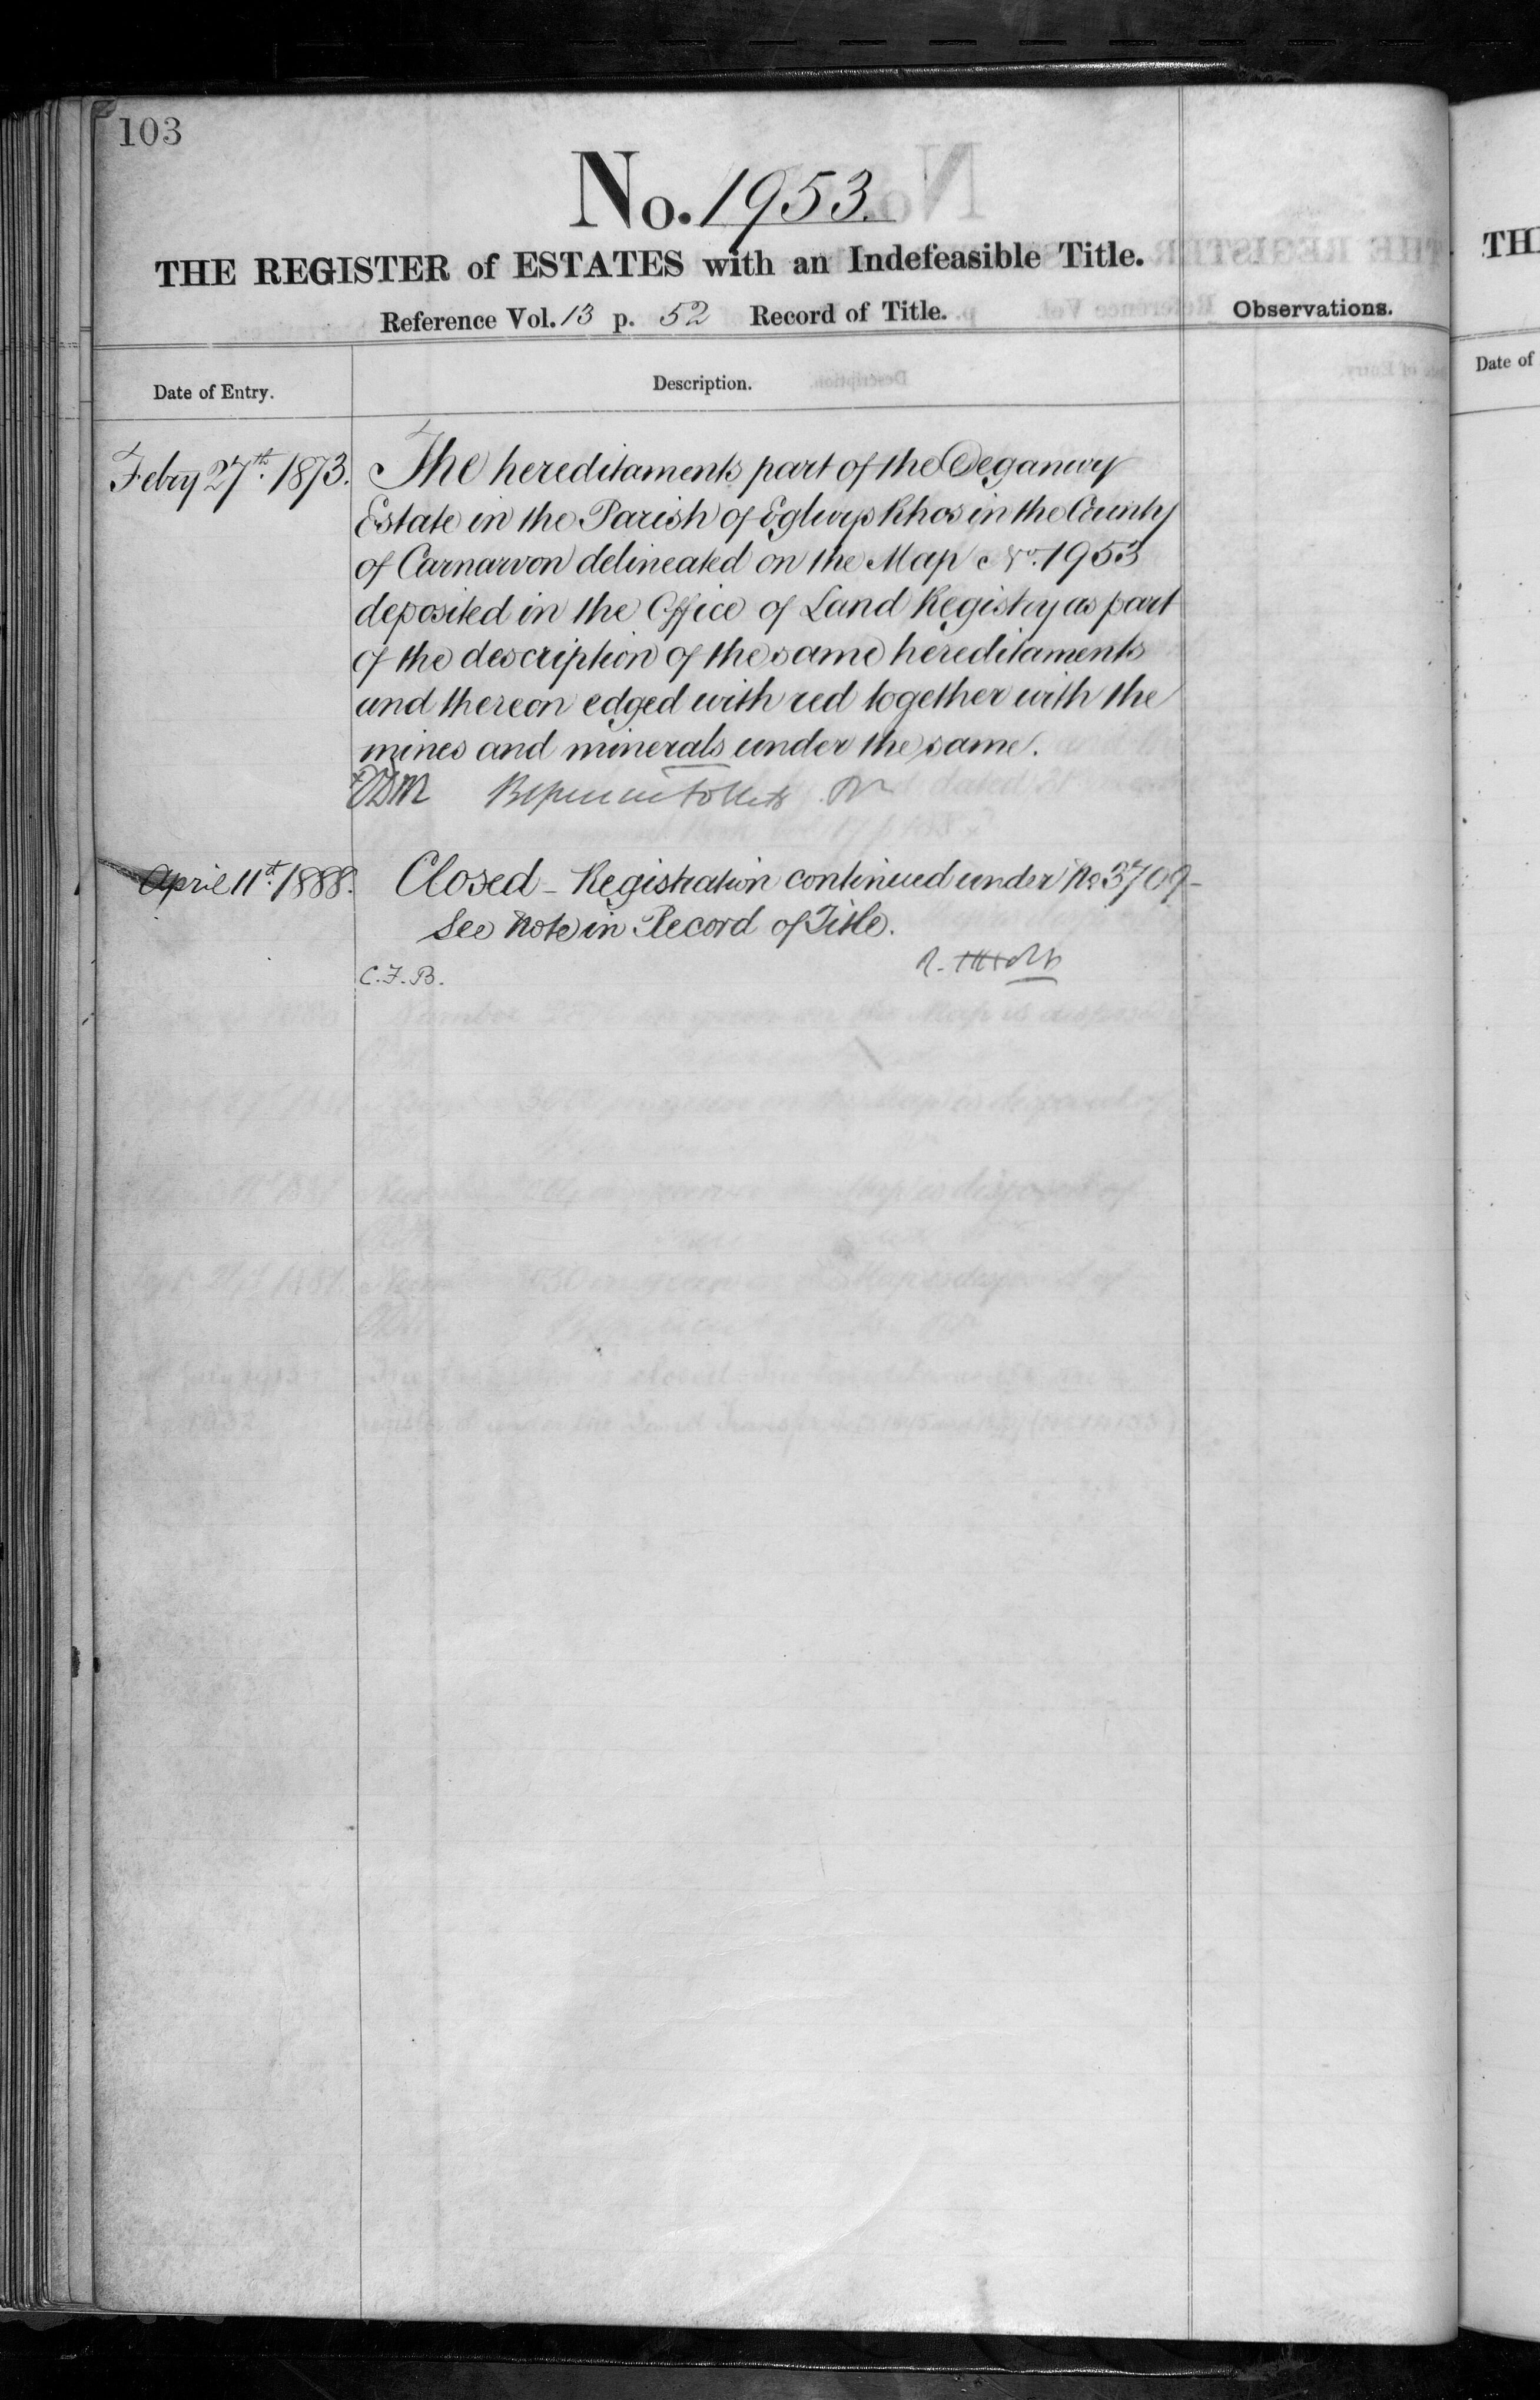 103
No. 1953.
THE REGISTER of ESTATES with an Indefeasible Title.
Reference Vol. 13 p. 52 Record of Title.
Observations.
Date of Entry.
Description.
Febry 27th. 1873.
The hereditaments part of the Deganwy
Estate in the Parish of Eglwys Rhos in the County
of Carnarvon delineated on the Map No. 1953
deposited in the Office of Land Registry as part
of the description of the same hereditaments
and thereon edged with red together with the
mines and minerals under the same.
April 11th. 1888.
Closed - Registration continued under No 3709-
See Note in Record of Title.
C.F.B.
TH
Date of